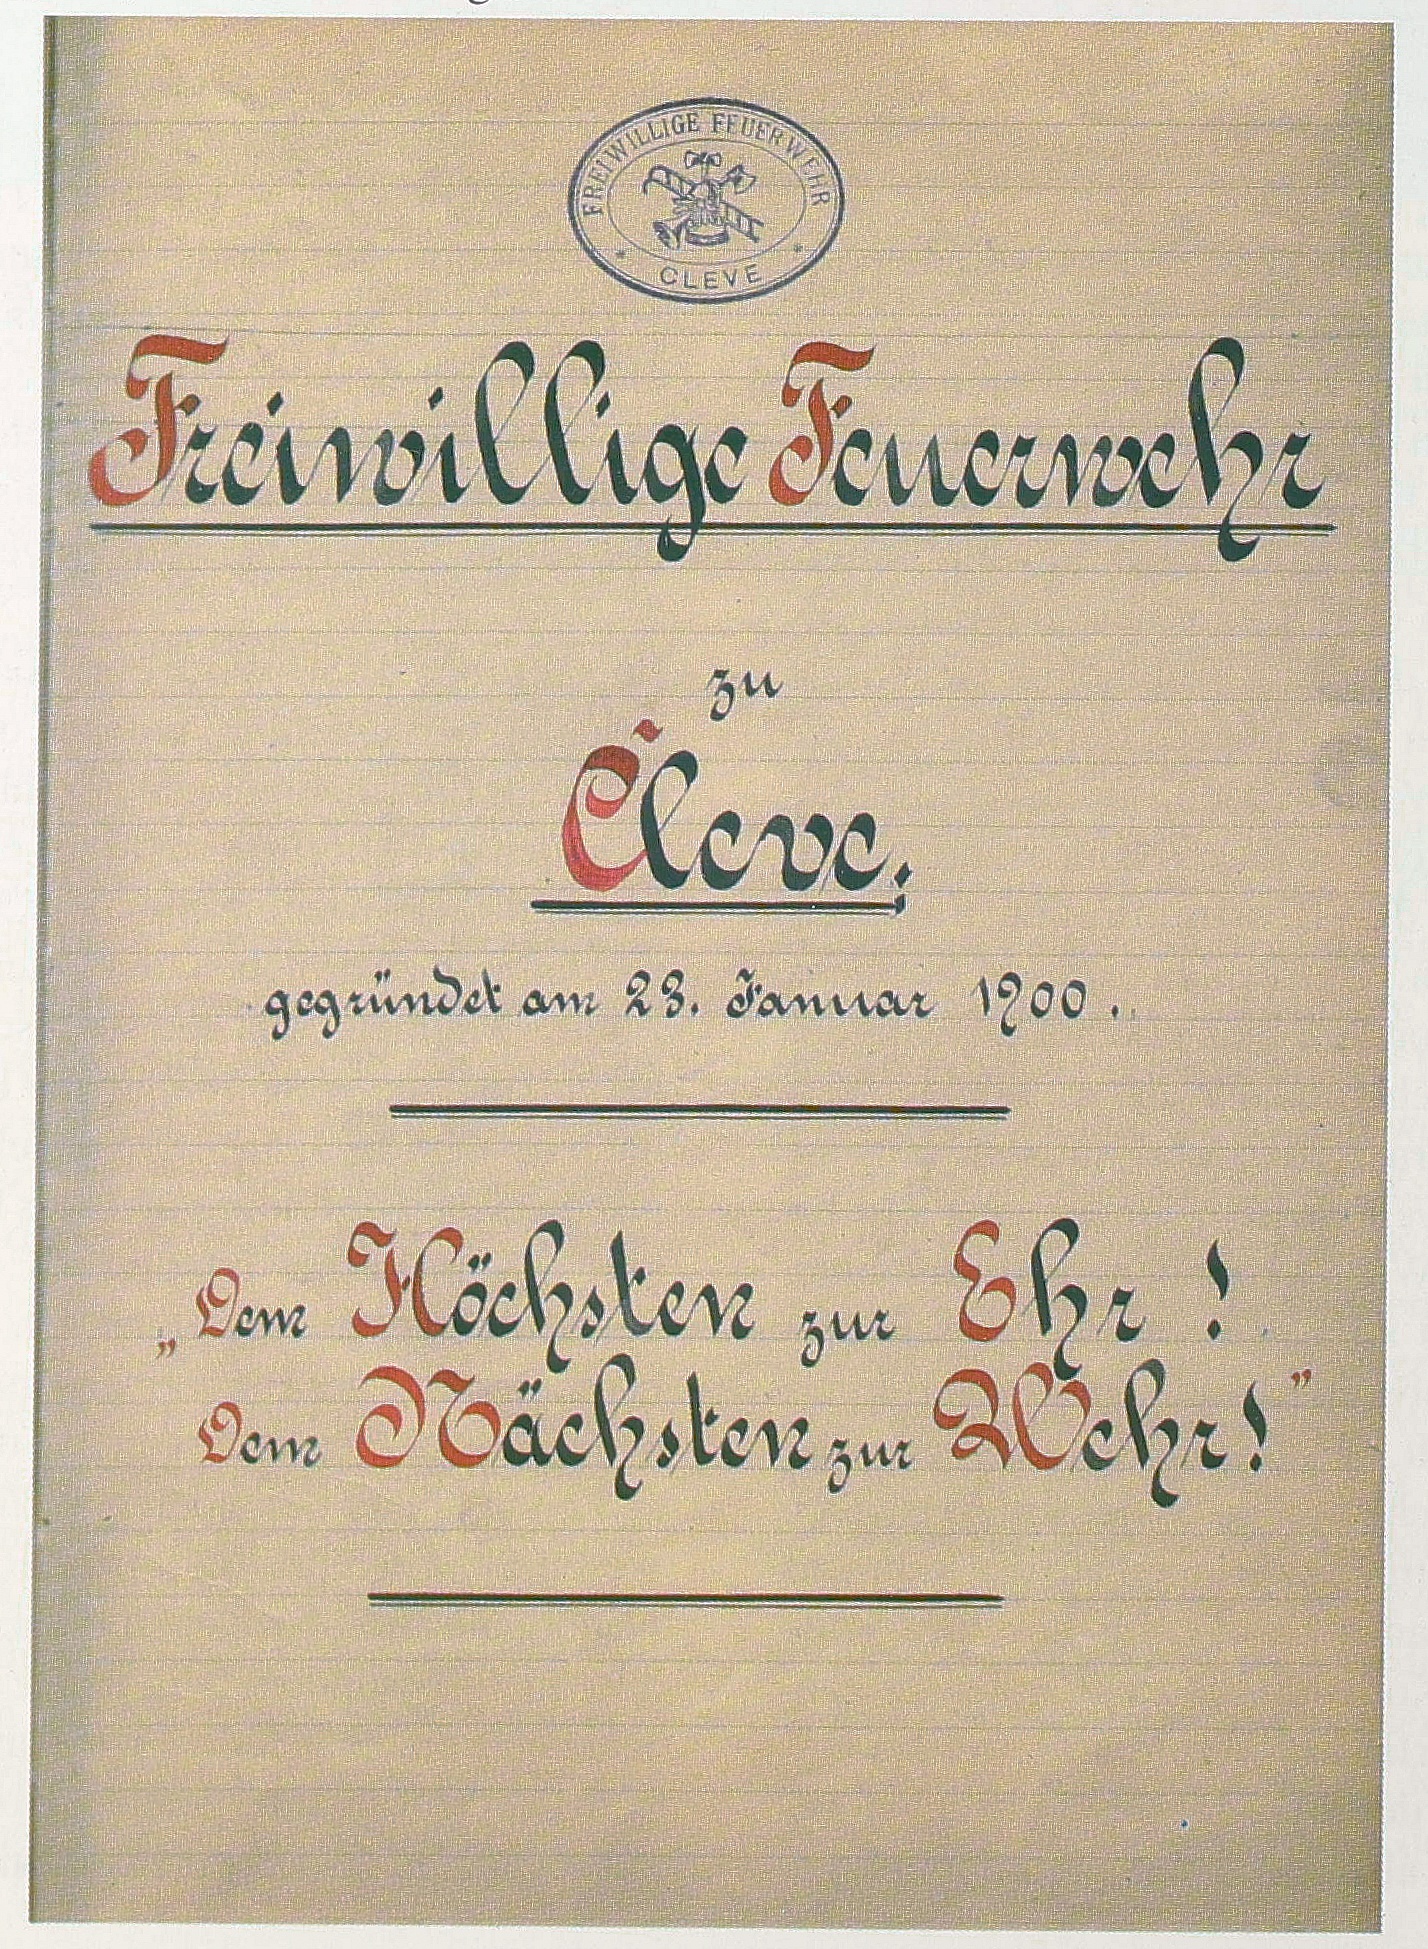 FREIWILLIGE FEUERWEHR
* CLEVE *
Freiwillige Feuerwehr
zu
Cleve.
gegründet am 23. Januar 1900.
„Dem Höchsten zur Ehr!
Dem Nächsten zur Wehr!"